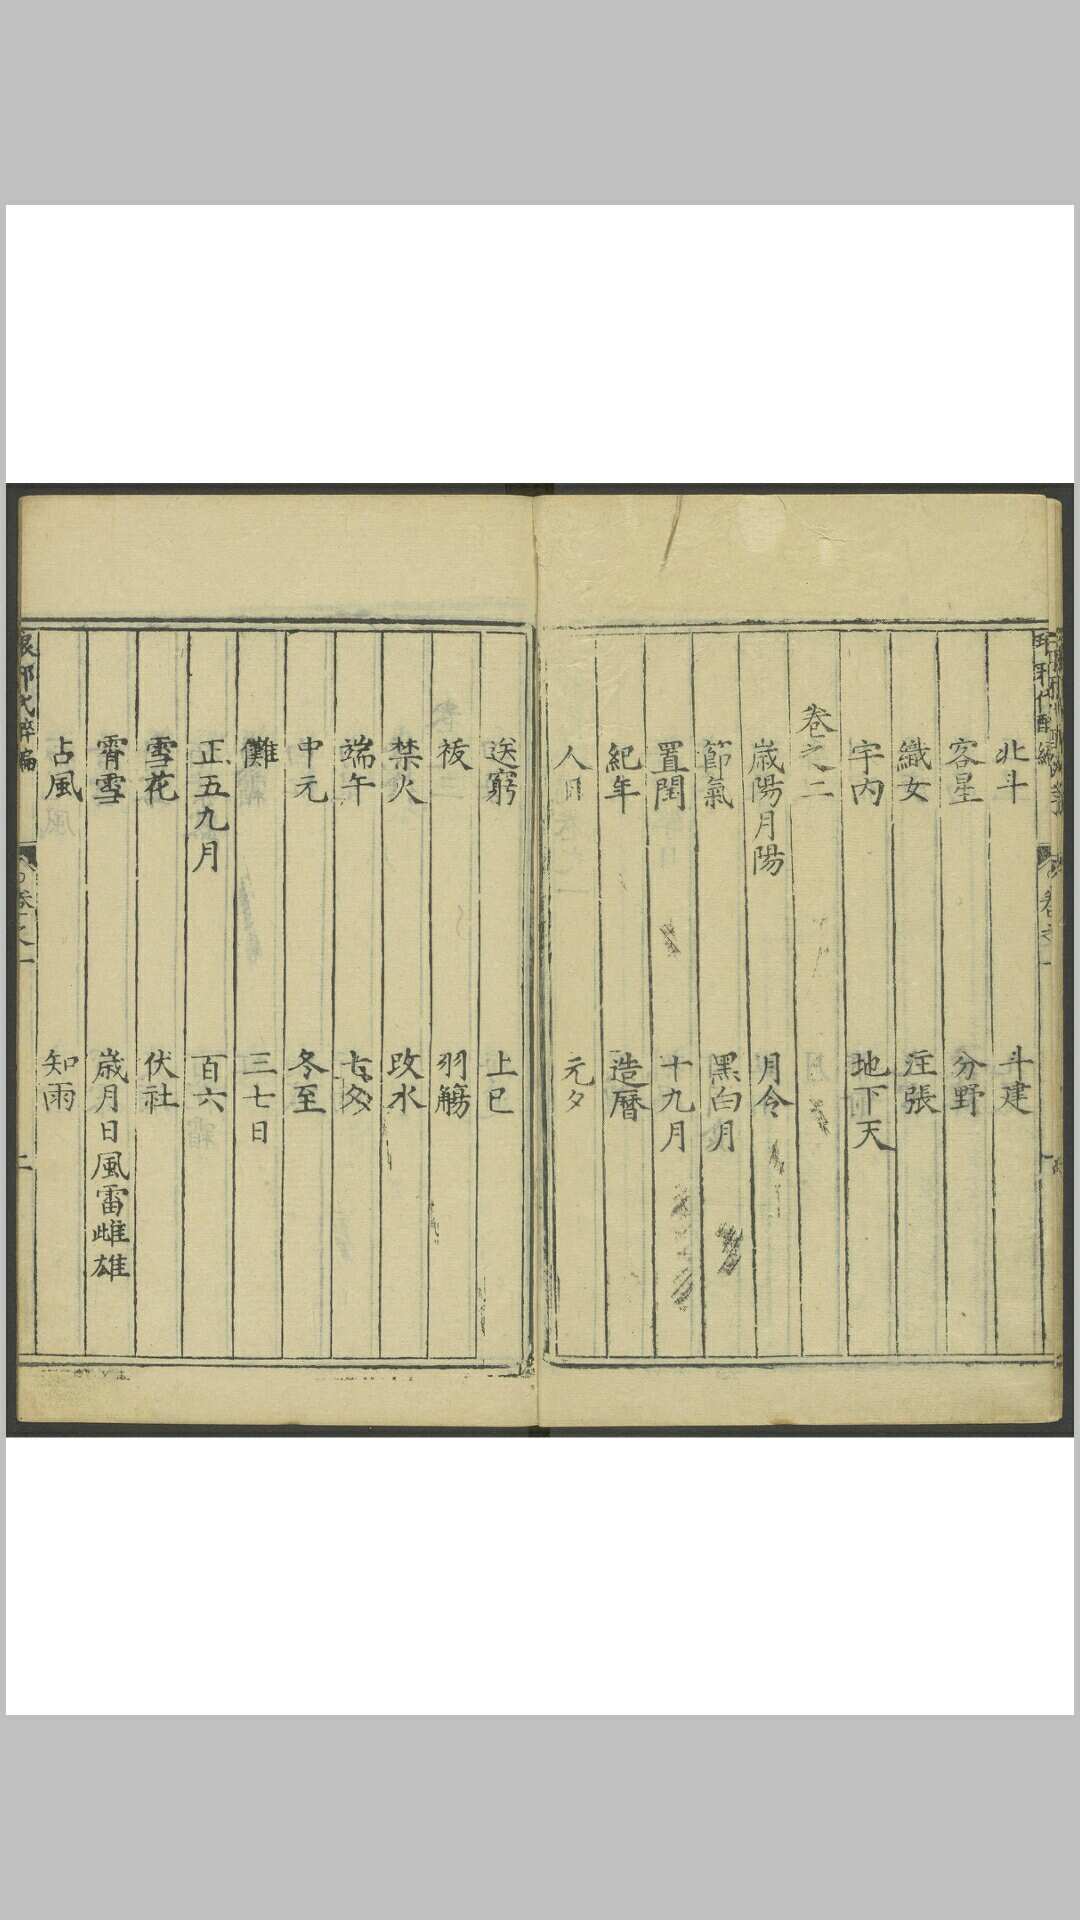 北斗 斗建
客星 分野
織女 注張
宇内 地下天
卷之二
歳陽月陽 月令
節氣 黑白月
置閏 十九月
紀年 造曆
人日 元夕
送窮 上巳
祓 羽觴
禁火 改水
端午 七夕
中元 冬至
儺 三七日
正五九月 百六
雪花 伏社
霄雪 歳月日風雷雌雄
占風 知雨
卷之一